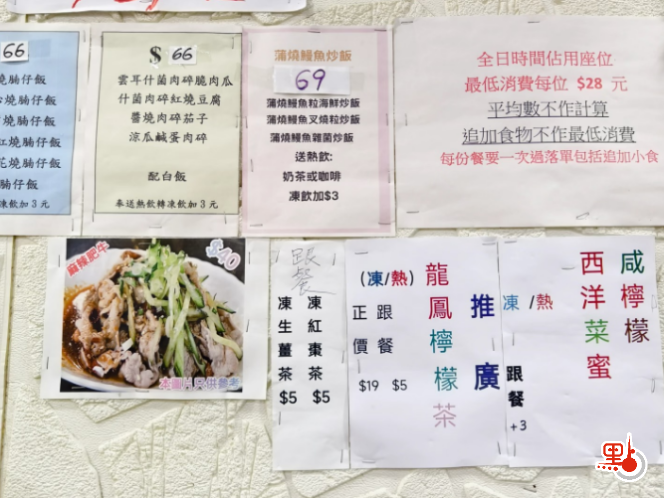 66
燒腩仔飯
燒腩仔飯
燒腩仔飯
紅燒腩仔飯
花燒腩仔飯
腩仔飯
凍飲加 3 元
$ 66
雲耳什菌肉碎脆肉瓜
什菌肉碎紅燒豆腐
醬燒肉碎茄子
涼瓜鹹蛋肉碎
配白飯
奉送熱飲轉凍飲加 3 元
蒲燒鰻魚炒飯
69
蒲燒鰻魚粒海鮮炒飯
蒲燒鰻魚叉燒粒炒飯
蒲燒鰻魚雜菌炒飯
送熱飲:
奶茶或咖啡
凍飲加$3
全日時間佔用座位
最低消費每位 $28 元
平均數不作計算
追加食物不作最低消費
每份餐要一次過落單包括追加小食
麻辣肥牛
$40
本圖片只供參考
跟餐
凍紅棗茶 $5
凍生薑茶 $5
推廣
龍鳳檸檬茶
(凍/熱)
跟餐 $5
正價 $19
咸檸檬
西洋菜蜜
凍 /熱
跟餐 +3
點